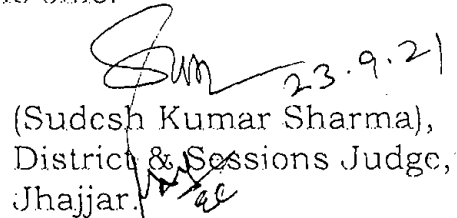 23.9.21
(Sudesh Kumar Sharma),
District & Sessions Judge,
Jhajjar.